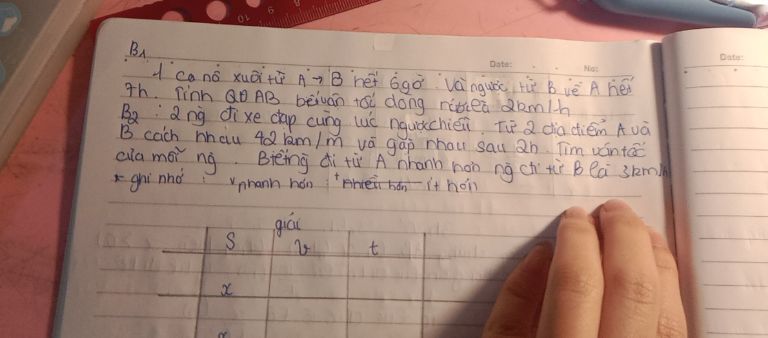 B1
1 ca nô xuôi từ A → B hết 6 giờ Và ngược từ B về A hết
7h. Tính QĐ AB bết vận tốc dòng nước là 2km/h
B2: 2 ng đi xe đạp cùng lúc ngược chiều. Từ 2 địa điểm A và
B cách nhau 42km/m và gặp nhau sau 2h. Tìm vận tốc
của mỗi ng. Biết ng đi từ A nhanh hơn ng đi từ B là 3km/h
* ghi nhớ: v nhanh hơn: t nhiều hơn ít hơn
giải
S v t
x
Date: No:
Date:
10 6 8